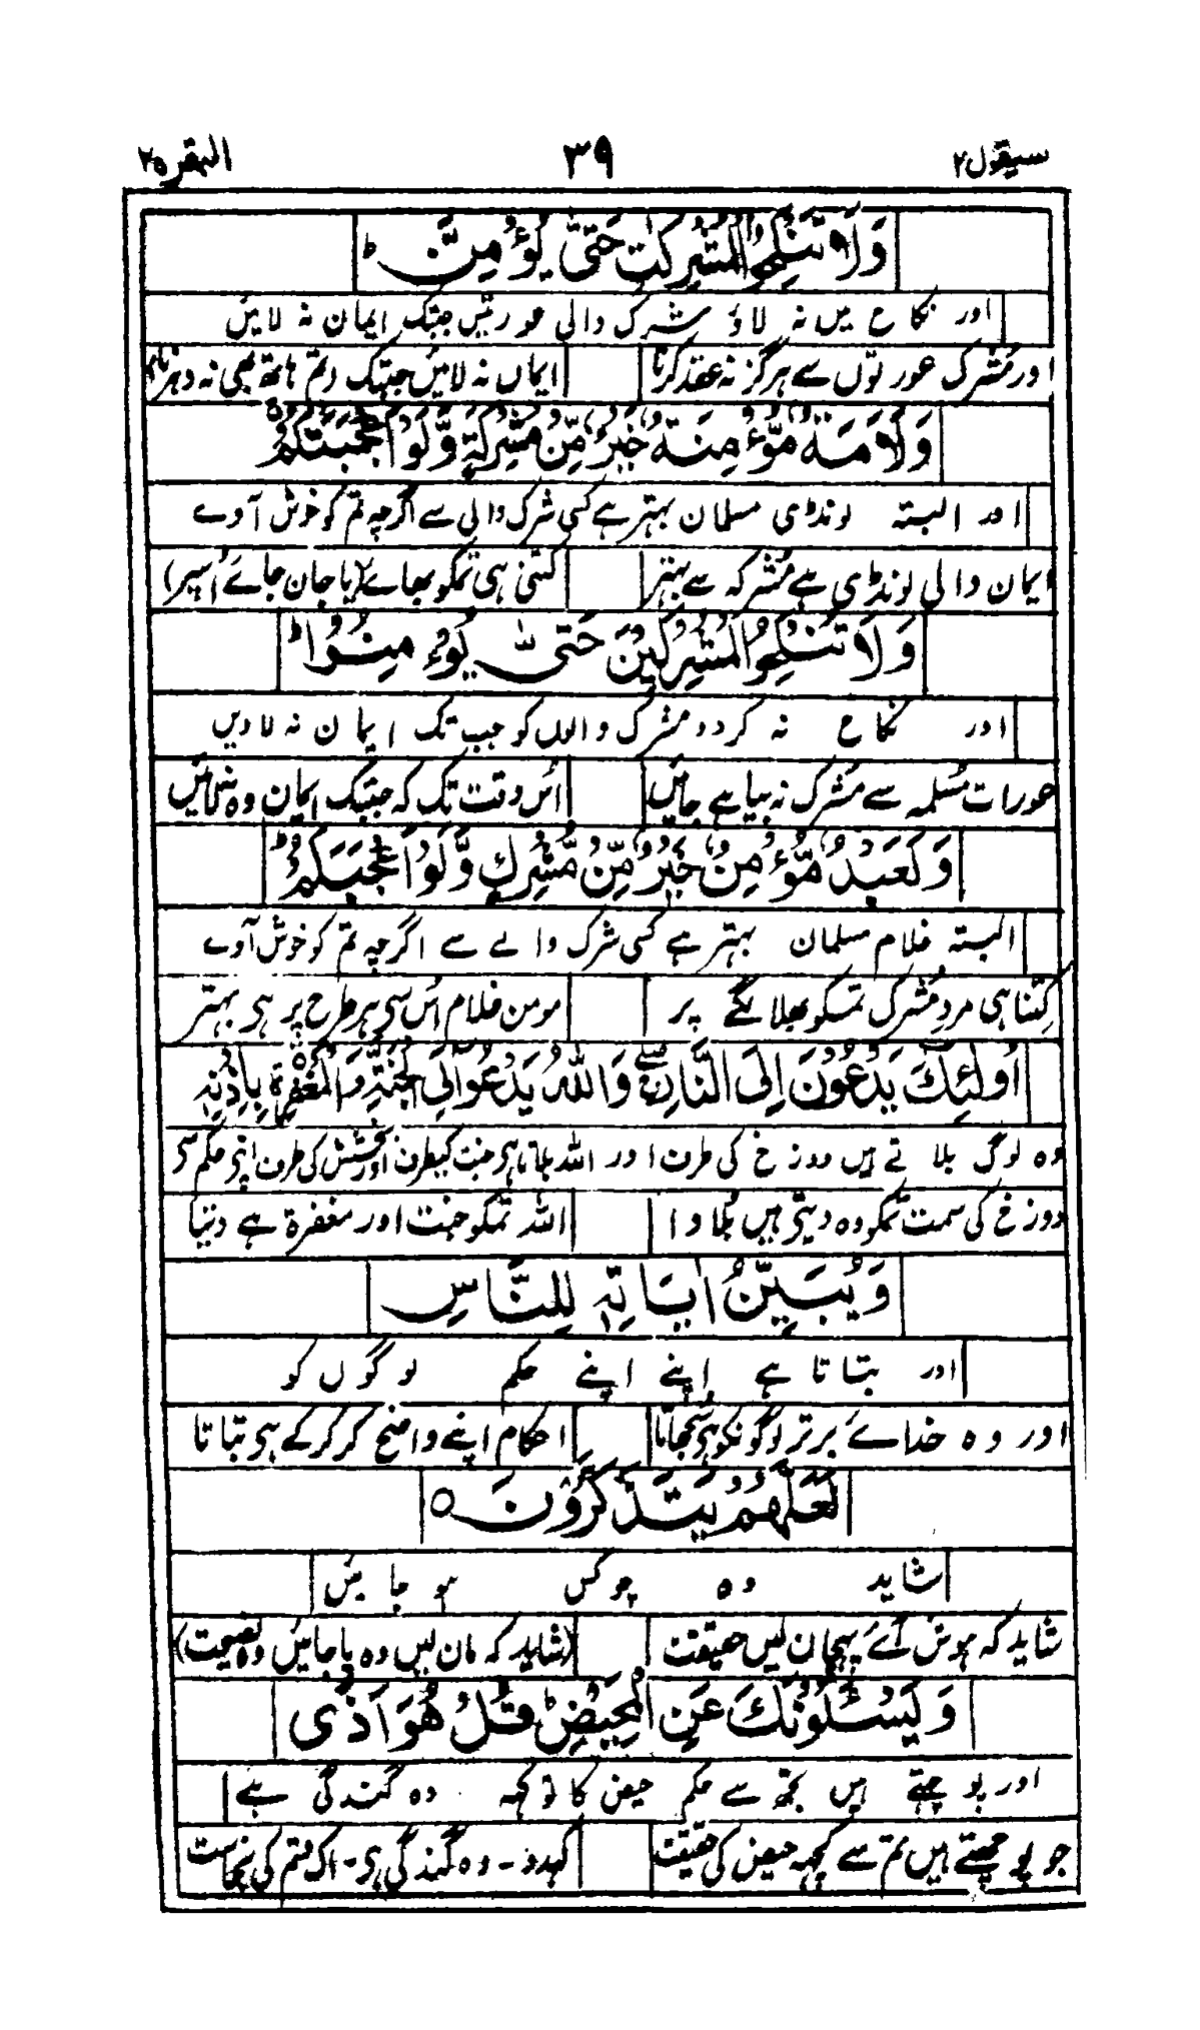 سیقول ۲
۳۹
البقرہ ۲
وَلَا تَنْكِحُوا الْمُشْرِكٰتِ حَتّٰى يُؤْمِنَّ ؕ
اور نکاح میں نہ لاؤ شرک والی عورتیں جبتک ایمان نہ لائیں
اور مُشرک عورتوں سے ہرگز نہ عقد کرنا ایماں نہ لائیں جبتک تم ہاتھ بھی نہ دہرنا
وَلَاَمَةٌ مُّؤْمِنَةٌ خَيْرٌ مِّنْ مُّشْرِكَةٍ وَّلَوْ اَعْجَبَتْكُمْ
اور البتہ لونڈی مسلمان بہتر ہے کسی شرک والی سے اگرچہ تم کو خوش آوے
ایمان والی لونڈی ہے مُشرکہ سے بہتر کتنی ہی تمکو بھائے (یا جان جائے اُسپر)
وَلَا تُنْكِحُوا الْمُشْرِكِيْنَ حَتّٰى يُؤْمِنُوْا ؕ
اور نکاح نہ کردو مشرک والوں کو جب تک ایمان نہ لاویں
عورات مُسلمہ سے مُشرک نہ بیاہے جائیں اُس وقت تک کہ جبتک ایمان وہ نہ لائیں
وَلَعَبْدٌ مُّؤْمِنٌ خَيْرٌ مِّنْ مُّشْرِكٍ وَّلَوْ اَعْجَبَكُمْ ؕ
البتہ غلام مسلمان بہتر ہے کسی شرک والے سے اگرچہ تم کو خوش آوے
کِتنا ہی مردِ مُشرک تمکو بھلا لگے پر مومن غلام اُس سی ہر طرح پر ہی بہتر
اُولٰٓئِكَ يَدْعُوْنَ اِلَى النَّارِ ۖ وَاللّٰهُ يَدْعُوْٓا اِلَى الْجَنَّةِ وَالْمَغْفِرَةِ بِاِذْنِهٖ
وہ لوگ بلاتے ہیں دوزخ کی طرف اور اللہ بلاتا ہی جنت کیطرف اور بخشش کی طرف اپنی حکم سی
دوزخ کی سمت تمکو وہ دیتی ہیں بُلاوا اللہ تمکو جنت اور مغفرۃ ہے دیتا
وَيُبَيِّنُ اٰيَاتِهٖ لِلنَّاسِ
اور بتاتا ہے اپنے اپنے حکم لوگوں کو
اور وہ خدائے برتر لوگونکو ہی سُجھاتا احکام اپنے واضح کر کر کے ہی بتاتا
لَعَلَّهُمْ يَتَذَكَّرُوْنَ ○
شاید وہ چوکس ہو جائیں
شاید کہ ہوش آئے پہچان لیں حقیقت (شاید کہ مان لیں وہ پا جائیں وہ نصیحت)
وَيَسْئَلُوْنَكَ عَنِ الْمَحِيْضِ ؕ قُلْ هُوَ اَذًى
اور پوچھتے ہیں تجھ سے حکم حیض کا تو کہہ وہ گندگی ہے
جو پوچھتے ہیں تم سے کچھہ حیض کی حقیقت کہدو۔ وہ گندگی ہی۔ اک قسم کی نجاست